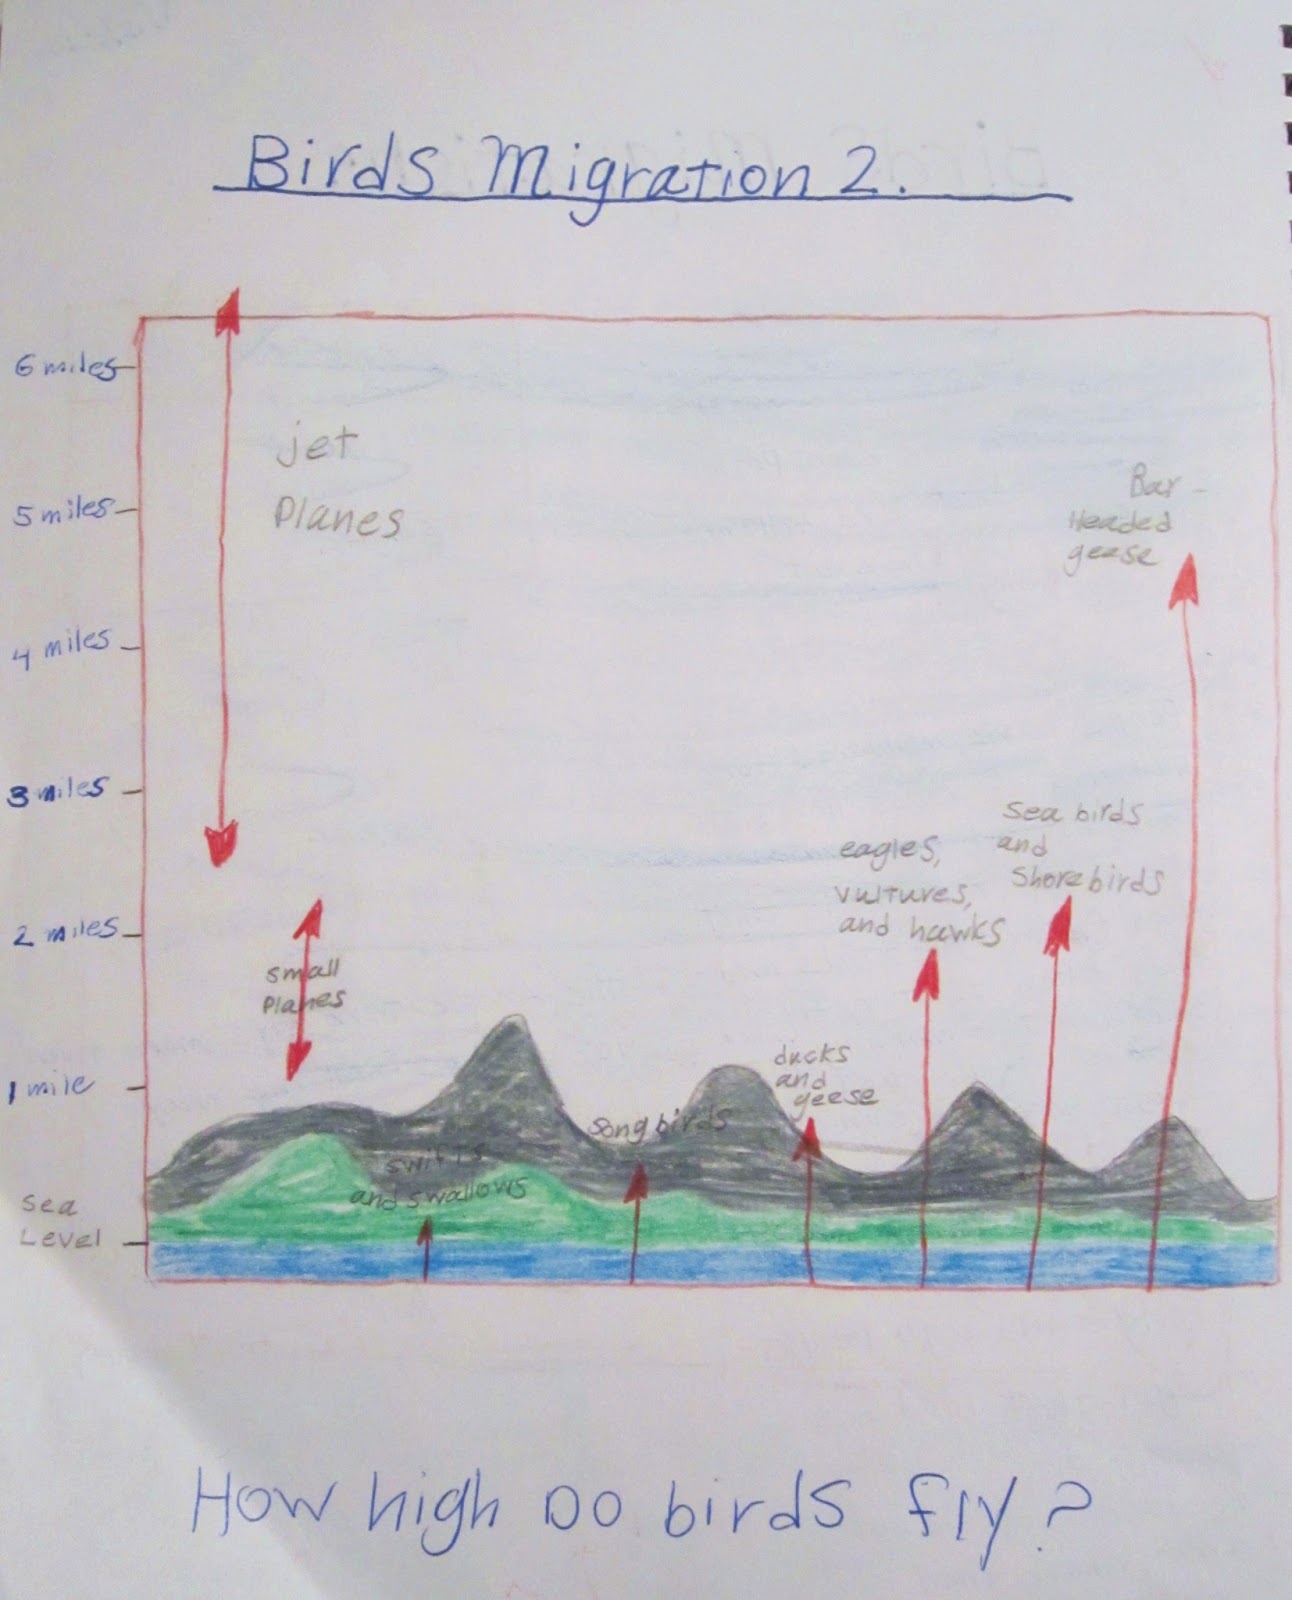 Birds Migration 2.
6 miles
jet
Planes
5 miles
Bar-
Headed
geese
4 miles
3 miles
sea birds
and
Shorebirds
eagles,
vultures,
and hawks
2 miles
small
Planes
1 mile
ducks
and
geese
song birds
swifts
and swallows
sea
Level
How high Do birds fly?